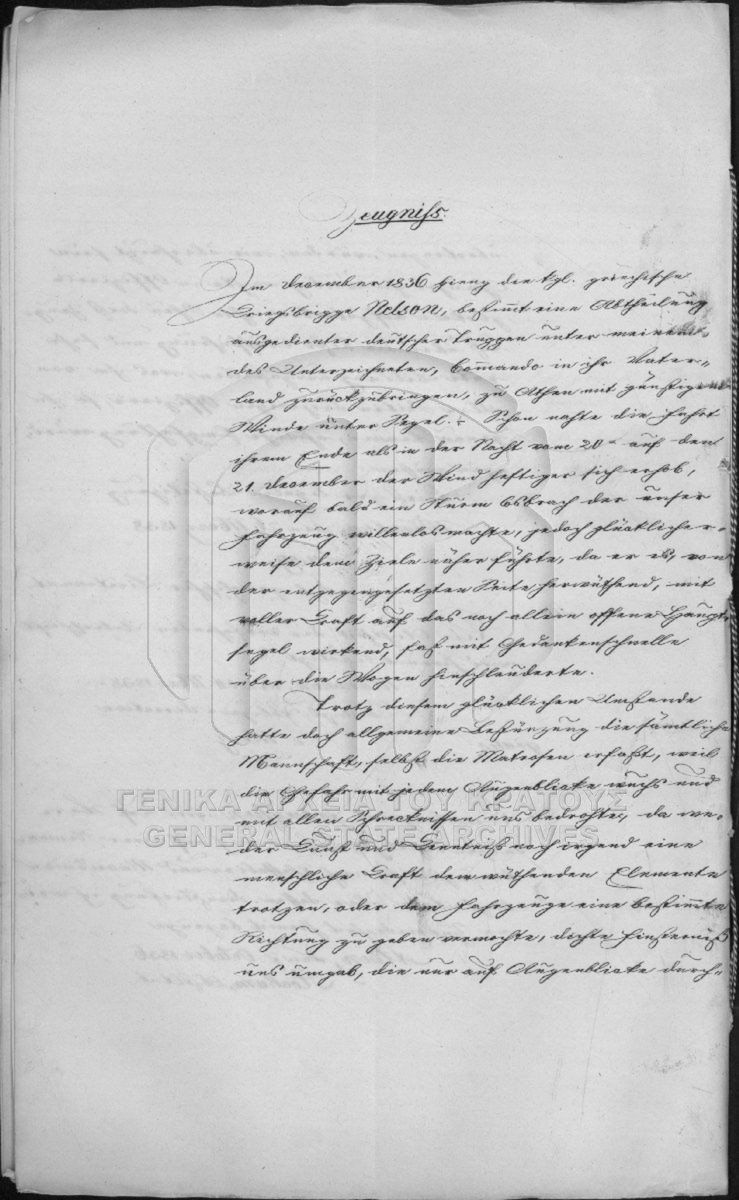 Zeugniss.
Im December 1836 gieng die kgl. griechische
Kriegsbrigge Nelson, bestim̅t eine Abtheilung
ausgedienter deutscher Truppen unter meinem,
des Unterzeichneten, Com̅ando in ihr Vater-
land zurückzubringen, zu Athen mit günstigem
Winde unter Segel. Schon nahte die Fahrt
ihrem Ende als in der Nacht vom 20 auf den
21. December der Wind heftiger sich erhob,
worauf bald ein Sturm losbrach der unser
Fahrzeug willenlos machte, jedoch glücklicher-
weise dem Ziele näher führte, da er es, von
der entgegengesetzten Seite herwüthend, mit
voller Kraft auf das noch allein offene Haupt-
segel wirkend, fast mit Gedankenschnelle
über die Wogen hinschleuderte.
Trotz diesem glücklichen Umstande
hatte doch allgemeine Bestürzung die sämtliche
Mannschaft, selbst die Matrosen erfaßt, weil
die Gefahr mit jedem Augenblicke wuchs und
mit allen Schrecknissen uns bedrohte, da we-
der Kunst und Kenntniß noch irgend eine
menschliche Kraft dem wüthenden Elemente
trotzen, oder dem Fahrzeuge eine bestim̅te
Richtung zu geben vermochte, dichte Finsterniß
uns umgab, die nur auf Augenblicke durch-
ΓΕΝΙΚΑ ΑΡΧΕΙΑ ΤΟΥ ΚΡΑΤΟΥΣ
GENERAL STATE ARCHIVES